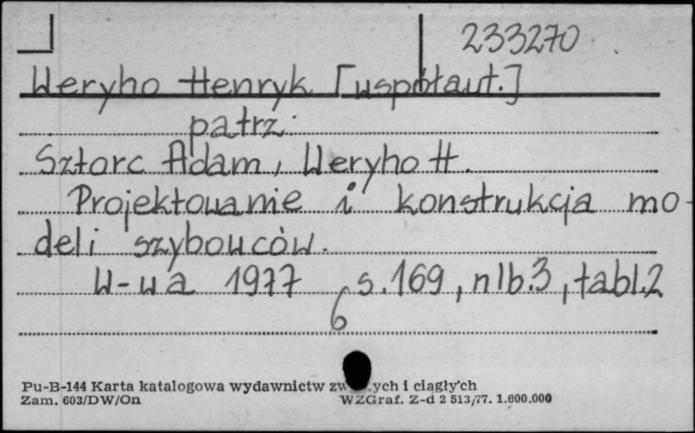 233270
Weryho Henryk [współaut.]
patrz:
Sztorc Adam, Weryho H.
Projektowanie i konstrukcja mo-
deli szybowców.
W-wa 1977 s.169, nlb.3, tabl.2
6
Pu-B-144 Karta katalogowa wydawnictw i ciągły'ch
Zam. 603/DW/On WZGraf. Z-d 2 513/77. 1.600.000